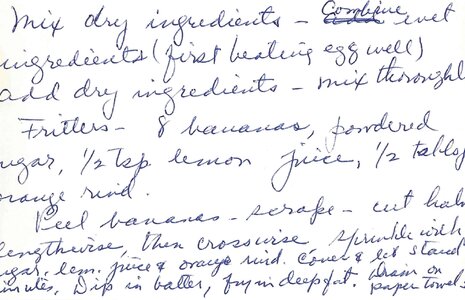 Mix dry ingredients - Combine wet
ingredients (first beating egg well)
add dry ingredients - mix thoroughl
Fritters - 8 bananas, powdered
ugar, 1/2 tsp. lemon juice, 1/2 tables
orange rind.
Peel bananas - scrape - cut halv
lengthwise, then crosswise sprinkle with
ugar, lem. juice & orange rind. Cover & let stand
minutes. Dip in batter, fry in deep fat. Drain on
paper towel